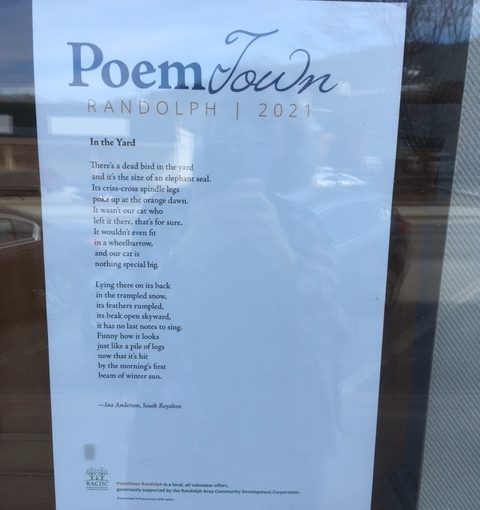 PoemTown
RANDOLPH | 2021
In the Yard
There's a dead bird in the yard
and it's the size of an elephant seal.
Its criss-cross spindle legs
poke up at the orange dawn.
It wasn't our cat who
left it there, that's for sure.
It wouldn't even fit
in a wheelbarrow,
and our cat is
nothing special big.
Lying there on its back
in the trampled snow,
its feathers rumpled,
its beak open skyward,
it has no last notes to sing.
Funny how it looks
just like a pile of logs
now that it's hit
by the morning's first
beam of winter sun.
—Ina Anderson, South Royalton
RACDC
PoemTown Randolph is a local, all volunteer effort,
generously supported by the Randolph Area Community Development Corporation.
Poem printed with permission of the author.